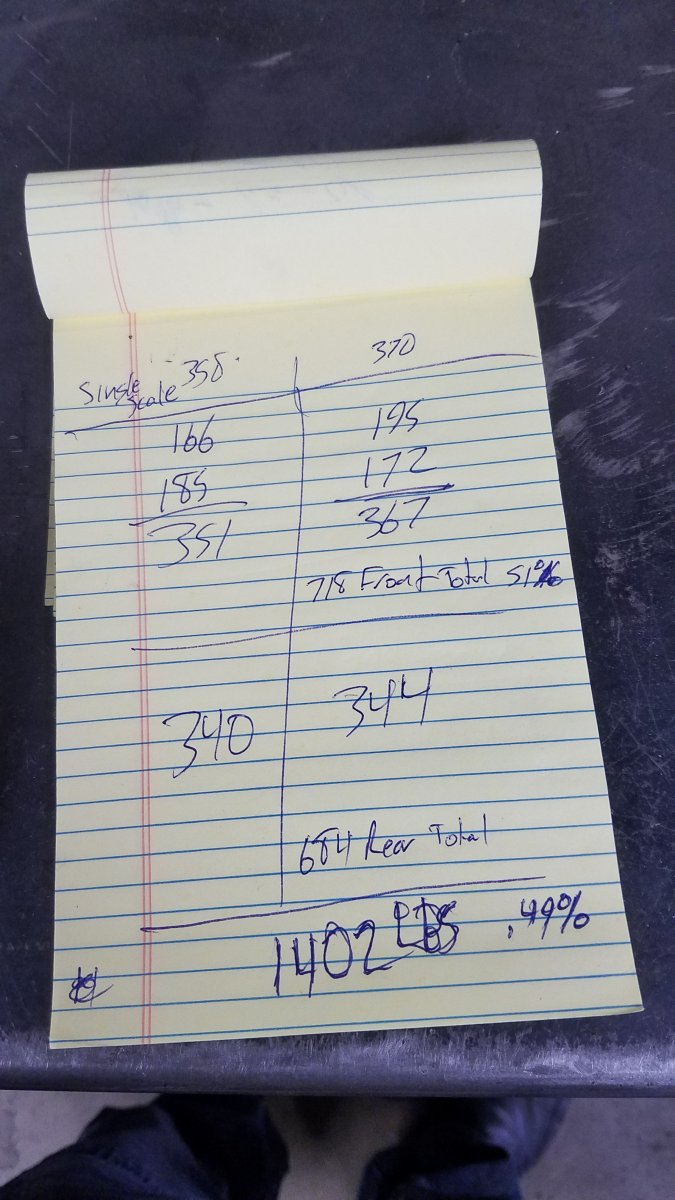 Single Scale 350
370
166
185
351
195
172
367
718 Front Total 51%
340
344
684 Rear Total
1402 LBS .49%